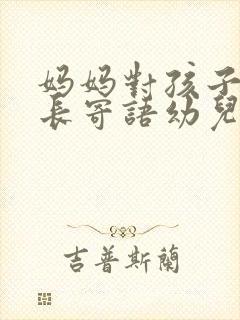 妈妈對孩子
長寄語幼兒
吉普斯蘭